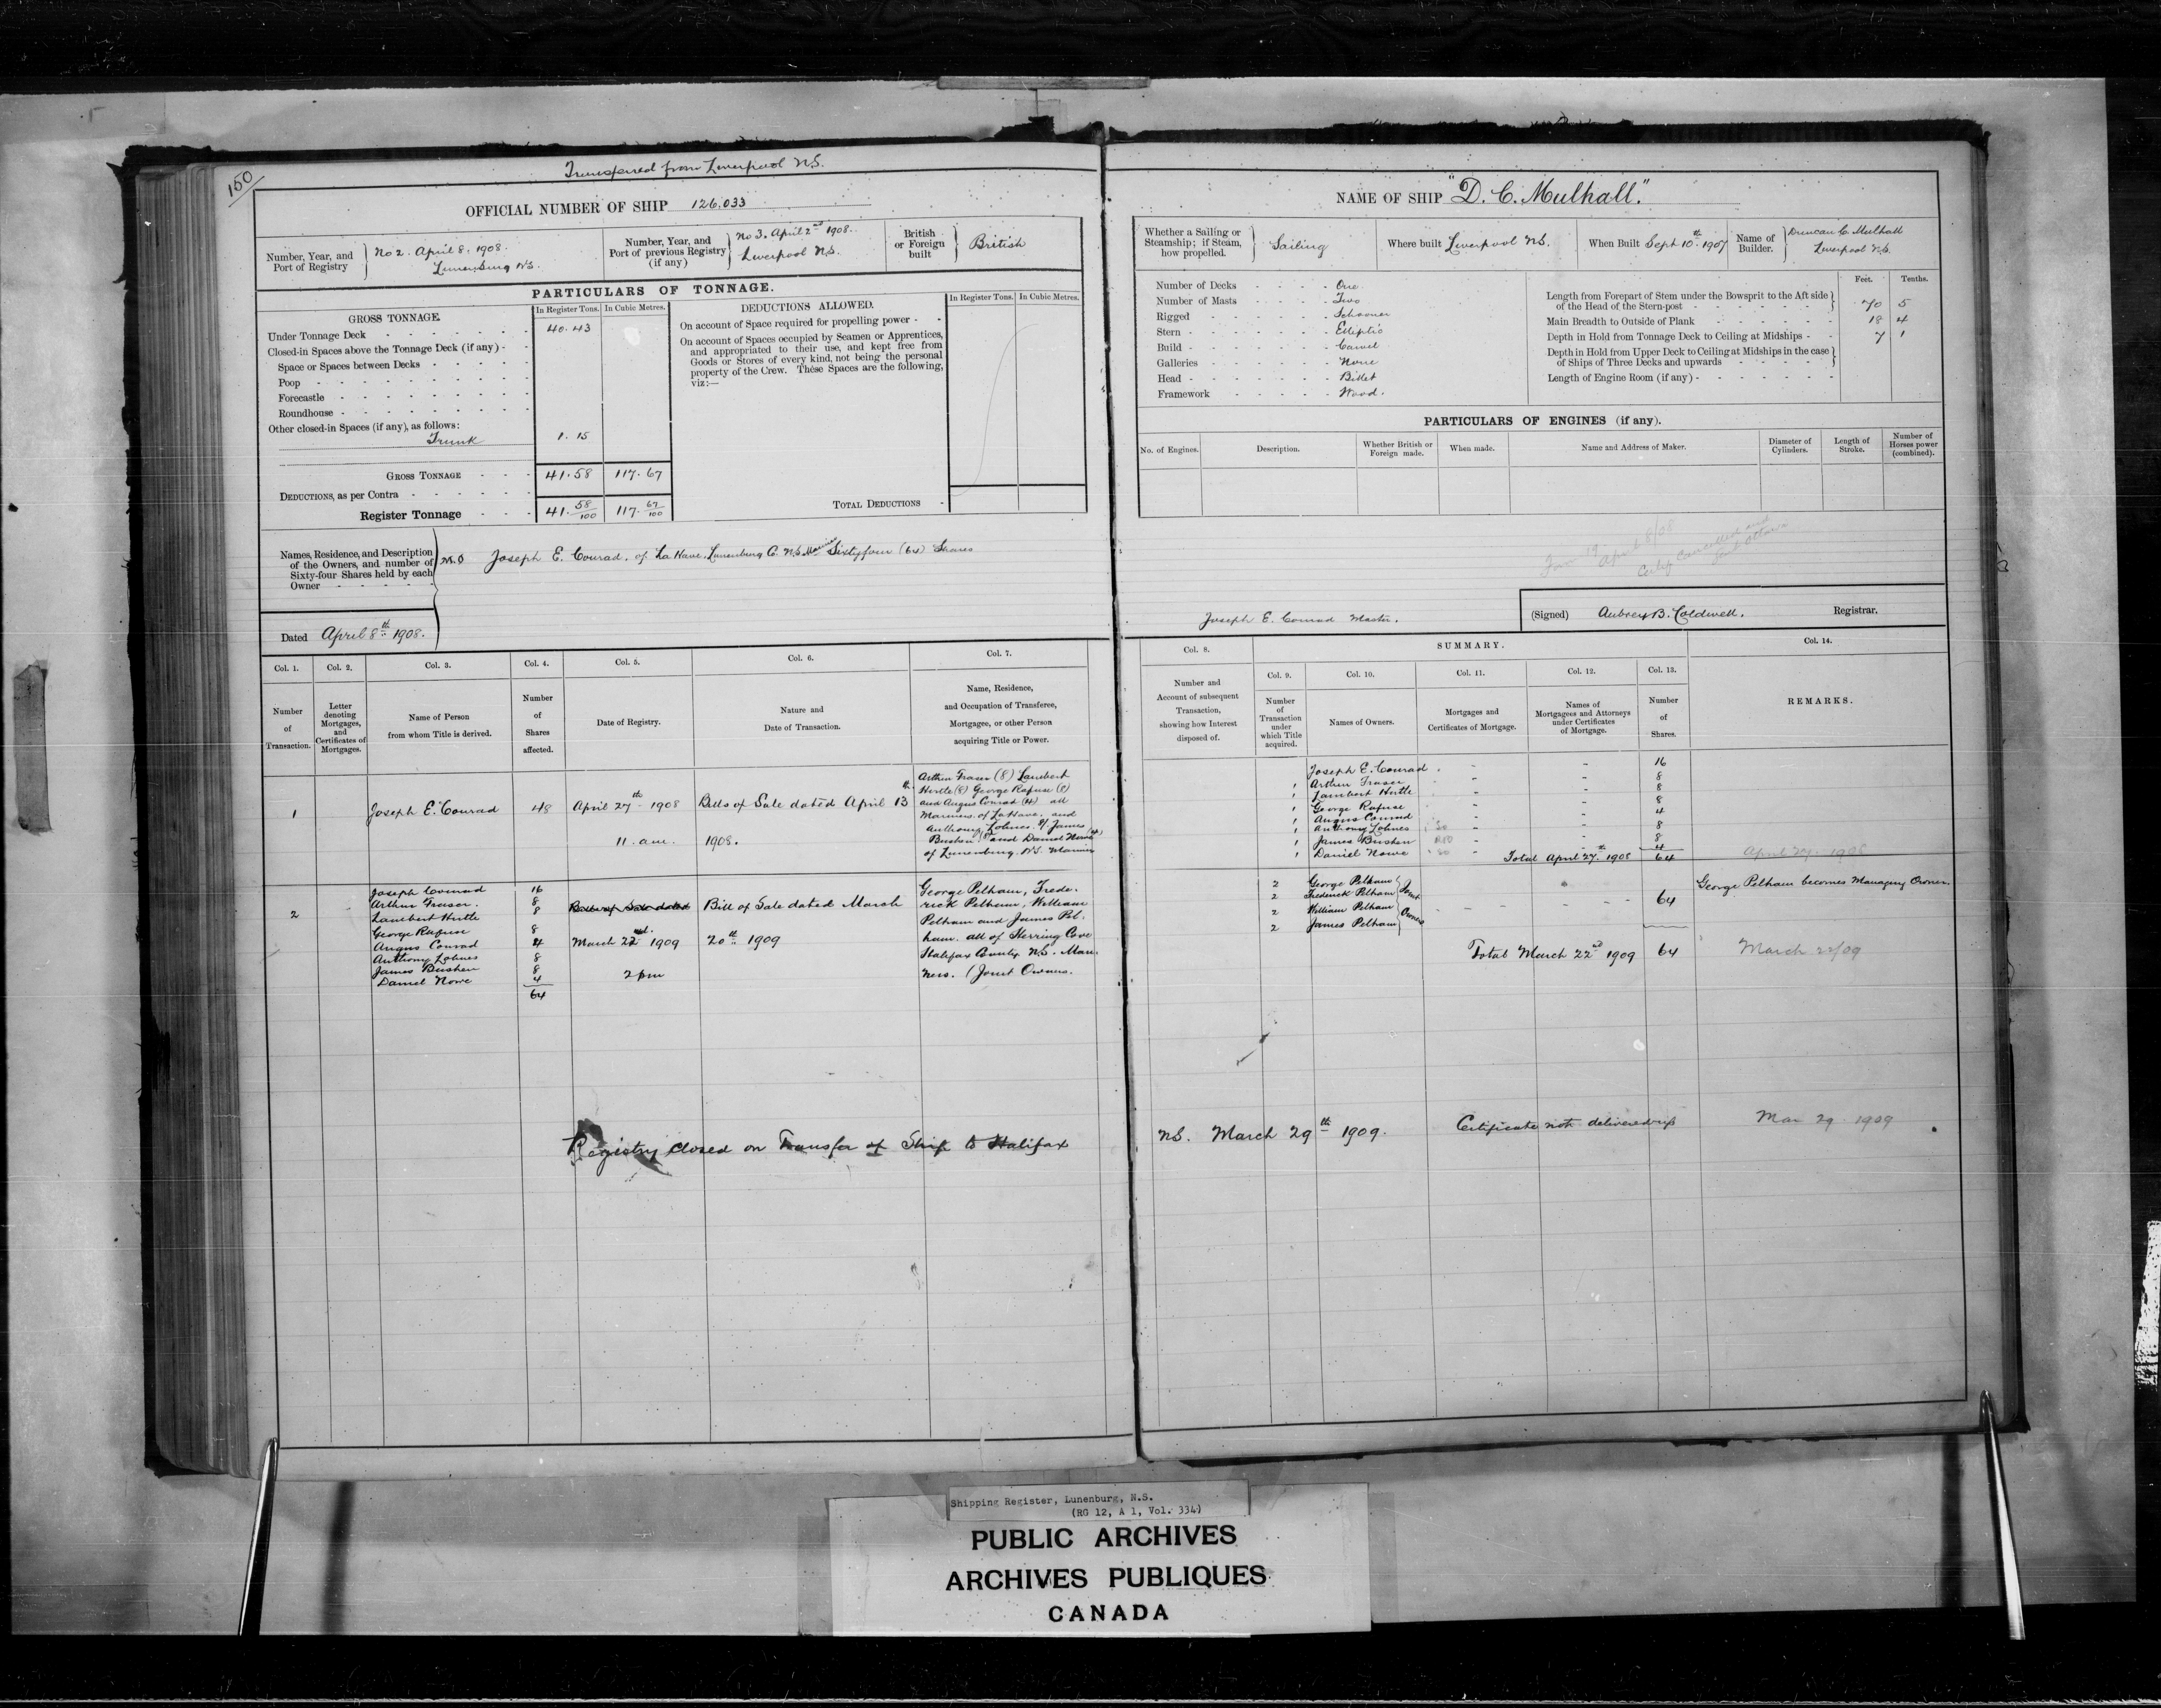 150
Transferred from Liverpool N.S.
OFFICIAL NUMBER OF SHIP 126.033
Number, Year, and Port of Registry
No 2. April 8, 1908.
Lunenburg N.S.
Number, Year, and Port of previous Registry (if any)
No 3. April 2nd 1908.
Liverpool N.S.
British or Foreign built
British
PARTICULARS OF TONNAGE.
GROSS TONNAGE
In Register Tons. In Cubic Metres.
Under Tonnage Deck 40.43
Closed-in Spaces above the Tonnage Deck (if any)
Space or Spaces between Decks
Poop
Forecastle
Roundhouse
Other closed-in Spaces (if any), as follows:
Trunk 1.15
GROSS TONNAGE 41.58 117.67
DEDUCTIONS, as per Contra
Register Tonnage 41. 58/100 117. 67/100
DEDUCTIONS ALLOWED.
In Register Tons. In Cubic Metres.
On account of Space required for propelling power
On account of Spaces occupied by Seamen or Apprentices,
and appropriated to their use, and kept free from
Goods or Stores of every kind, not being the personal
property of the Crew. These Spaces are the following,
viz:—
TOTAL DEDUCTIONS
Names, Residence, and Description
of the Owners, and number of
Sixty-four Shares held by each
Owner
M.O Joseph E. Conrad, of La Have, Lunenburg C. N.S. Mariner Sixtyfour (64) Shares
Dated April 8th 1908.
Col. 1. Col. 2. Col. 3. Col. 4. Col. 5. Col. 6. Col. 7.
Number of Transaction.
Letter denoting Mortgages, and Certificates of Mortgages.
Name of Person from whom Title is derived.
Number of Shares affected.
Date of Registry.
Nature and Date of Transaction.
Name, Residence, and Occupation of Transferee, Mortgagee, or other Person acquiring Title or Power.
1
Joseph E. Conrad
48
April 27th 1908
11. am.
Bills of Sale dated April 13th
1908.
Arthur Fraser (8) Lambert
Hirtle (8) George Rafuse (8)
and Angus Conrad (4) all
Mariners of LaHave. and
Anthony Lohnes (8) James
Bushen (8) and Daniel Nowe (4)
of Lunenburg N.S. Mariners
2
Joseph Conrad 16
Arthur Fraser. 8
Lambert Hirtle 8
George Rafuse 8
Angus Conrad 4
Anthony Lohnes 8
James Bushen 8
Daniel Nowe 4
64
Bill of Sale dated
March 22nd 1909
2 pm
Bill of Sale dated March
20th 1909
George Pelham, Frede.
rick Pelham, William
Pelham and James Pel.
ham. all of Herring Cove
Halifax County N.S. Mari
ners. (Joint Owners.
Registry closed on Transfer of Ship to Halifax
NAME OF SHIP "D. C. Mulhall."
Whether a Sailing or Steamship; if Steam, how propelled.
Sailing
Where built Liverpool N.S.
When Built Sept 10th 1907
Name of Builder.
Duncan C. Mulhall
Liverpool N.S.
Number of Decks One
Number of Masts Two
Rigged Schooner
Stern Elliptic
Build Carvel
Galleries None
Head Billet
Framework Wood.
Feet. Tenths.
Length from Forepart of Stem under the Bowsprit to the Aft side
of the Head of the Stern-post 70 5
Main Breadth to Outside of Plank 18 4
Depth in Hold from Tonnage Deck to Ceiling at Midships 7 1
Depth in Hold from Upper Deck to Ceiling at Midships in the case
of Ships of Three Decks and upwards
Length of Engine Room (if any)
PARTICULARS OF ENGINES (if any).
No. of Engines. Description. Whether British or Foreign made. When made. Name and Address of Maker. Diameter of Cylinders. Length of Stroke. Number of Horses power (combined).
Form 19
April 8/08
Certif Cancelled and
Sent Ottawa
Joseph E. Conrad Master.
(Signed) Aubrey B. Caldwell. Registrar.
SUMMARY.
Col. 8. Col. 9. Col. 10. Col. 11. Col. 12. Col. 13. Col. 14.
Number and Account of subsequent Transaction, showing how Interest disposed of.
Number of Transaction under which Title acquired.
Names of Owners.
Mortgages and Certificates of Mortgage.
Names of Mortgagees and Attorneys under Certificates of Mortgage.
Number of Shares.
REMARKS.
Joseph E. Conrad 16
1 Arthur Fraser 8
1 Lambert Hirtle 8
1 George Rafuse 8
1 Angus Conrad 4
1 Anthony Lohnes 8
1 James Bushen 8
1 Daniel Nowe 4
Total April 27th 1908 64
April 27. 1908
2 George Pelham
2 Frederick Pelham
2 William Pelham
2 James Pelham
Joint Owners
64
George Pelham becomes Managing Owner.
Total March 22nd 1909 64
March 22/09
N.S. March 29th 1909.
Certificate not delivered up
Mar 29. 1909
Shipping Register, Lunenburg, N.S.
(RG 12, A 1, Vol. 334)
PUBLIC ARCHIVES
ARCHIVES PUBLIQUES
CANADA